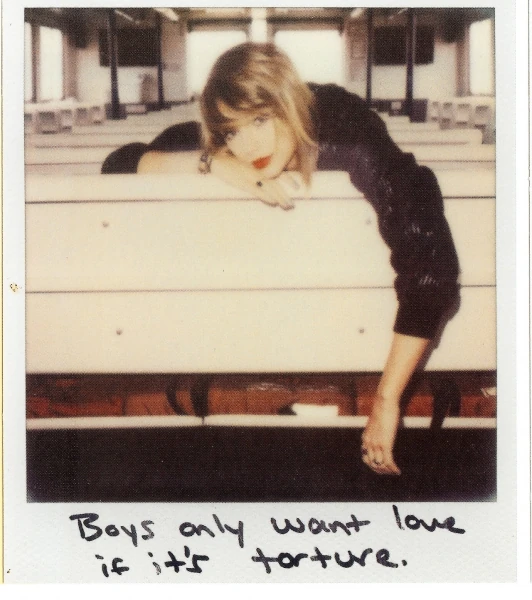 Boys only want love
if it's torture.